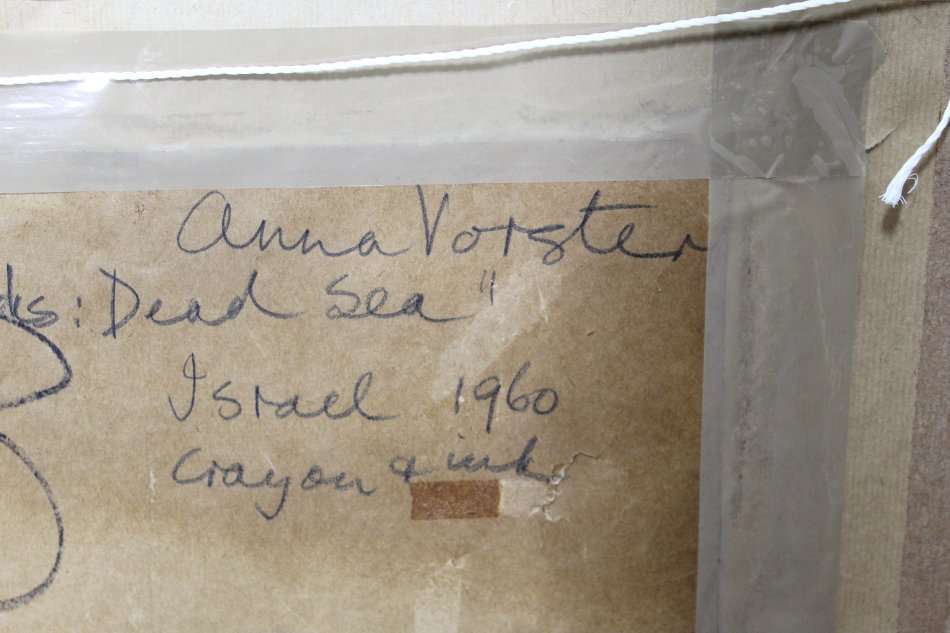 Anna Vorster
ks: Dead Sea"
Israel 1960
Crayon & ink